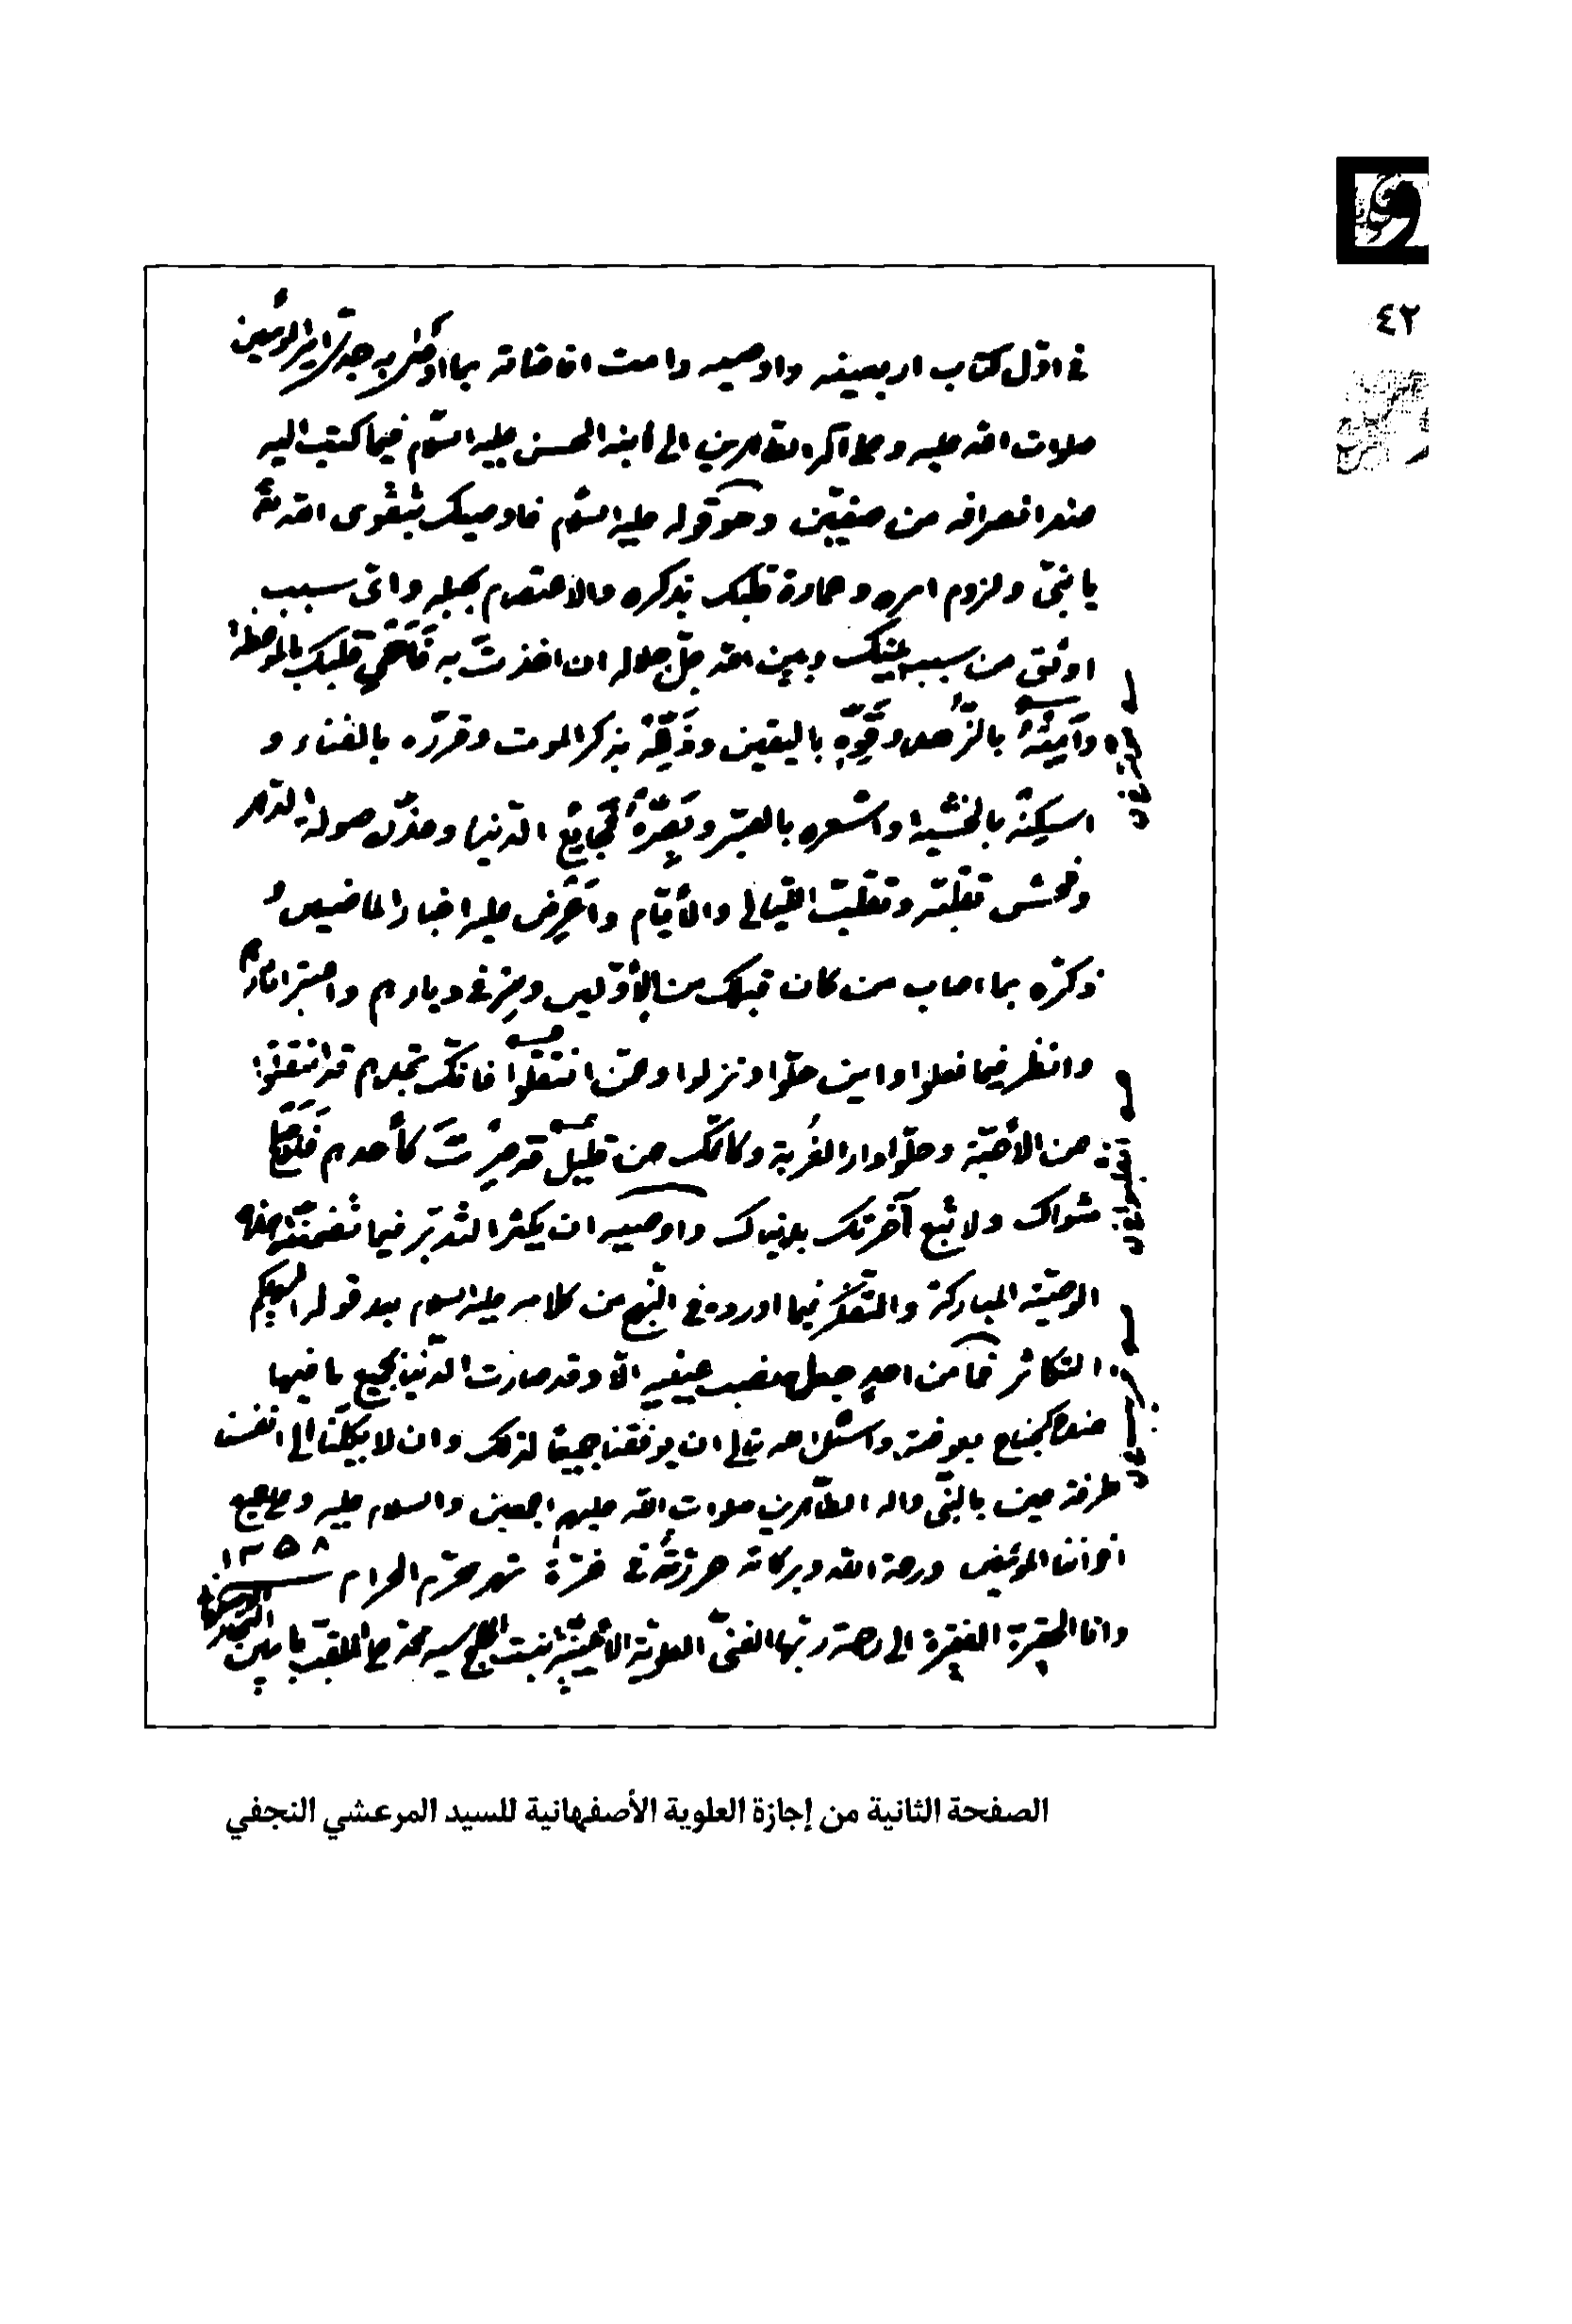 ٤٢
في اوّل كتاب اربعينه واوصيه دامت افاضاته بما اوصى به جدّى امير المؤمنين
صلوات الله عليه وعلى آله الطاهرين الى ابنه الحسن عليه السّلام فيما كتب اليه
عند انصرافه من صفّين وهو قوله عليه السّلام فاوصيك بتقوى الله
يا بنىّ ولزوم امره وعمارة قلبك بذكره والاعتصام بحبله واىّ سبب
اوثق من سبب بينك وبين الله جلّ جلاله ان اخذت به فَأَحْىِ قلبك بالموعظة
وَأَمِتْهُ بالزُّهد وقَوِّهِ باليقين وذَلِّلْهُ بذكر الموت وقرّره بالفناء و
اسكِنْهُ بالخشية واشعره بالصبر وبَصِّرْهُ فَجَائِعَ الدّنيا وحذّره صولة الدّهر
وفحش تقلّبه وتقلّب اللّيالى والأيّام واَعْرِض عليه اخبار الماضين و
ذكّره بما اصاب من كان قبلك من الأوّلين وسِرْ فى ديارهم واعتبر آثارهم
وانظر فيما فعلوا واين حلّوا ونزلوا وعمّن انتقلوا فانّك تجدهم قد انتقلوا
عن الأحبّة وحلّوا دار الغُربة وكانّك عن قليل قد صِرْتَ كأحدهم فَأَصْلِحْ
مثواك ولا تبع آخرتك بدنياك واوصيه ان يكثر التّدبّر فيما تضمّنته هذه
الوصيّة المباركة والتّفكّر فيما اورده فى النّهج من كلامه عليه السلام بعد قوله الهيكم
التكاثر فما من احدٍ جعلها نصب عينيهِ الّا وقد صارت الدّنيا بجميع ما فيها
عنده كجناح بعوضة واسئل الله تعالى ان يوفقنا جميعًا لذلك وان لا يكلنا الى انفسنا
طرفة عين بالنّبىّ واله الطّاهرين صلوات الله عليهم اجمعين والسلام عليه وعلى جميع
اخواننا المؤمنين ورحمة الله وبركاته حرّرته فى غرّة شهر محرّم الحرام ١٣٥٨
وانا الحقيرة الفقيرة الى رحمة ربّها الغنىّ العلويّة الأمينيّة بنت الحاج سيد محمد على الملقب بامين
الصفحة الثانية من إجازة العلوية الأصفهانية للسيد المرعشي النجفي